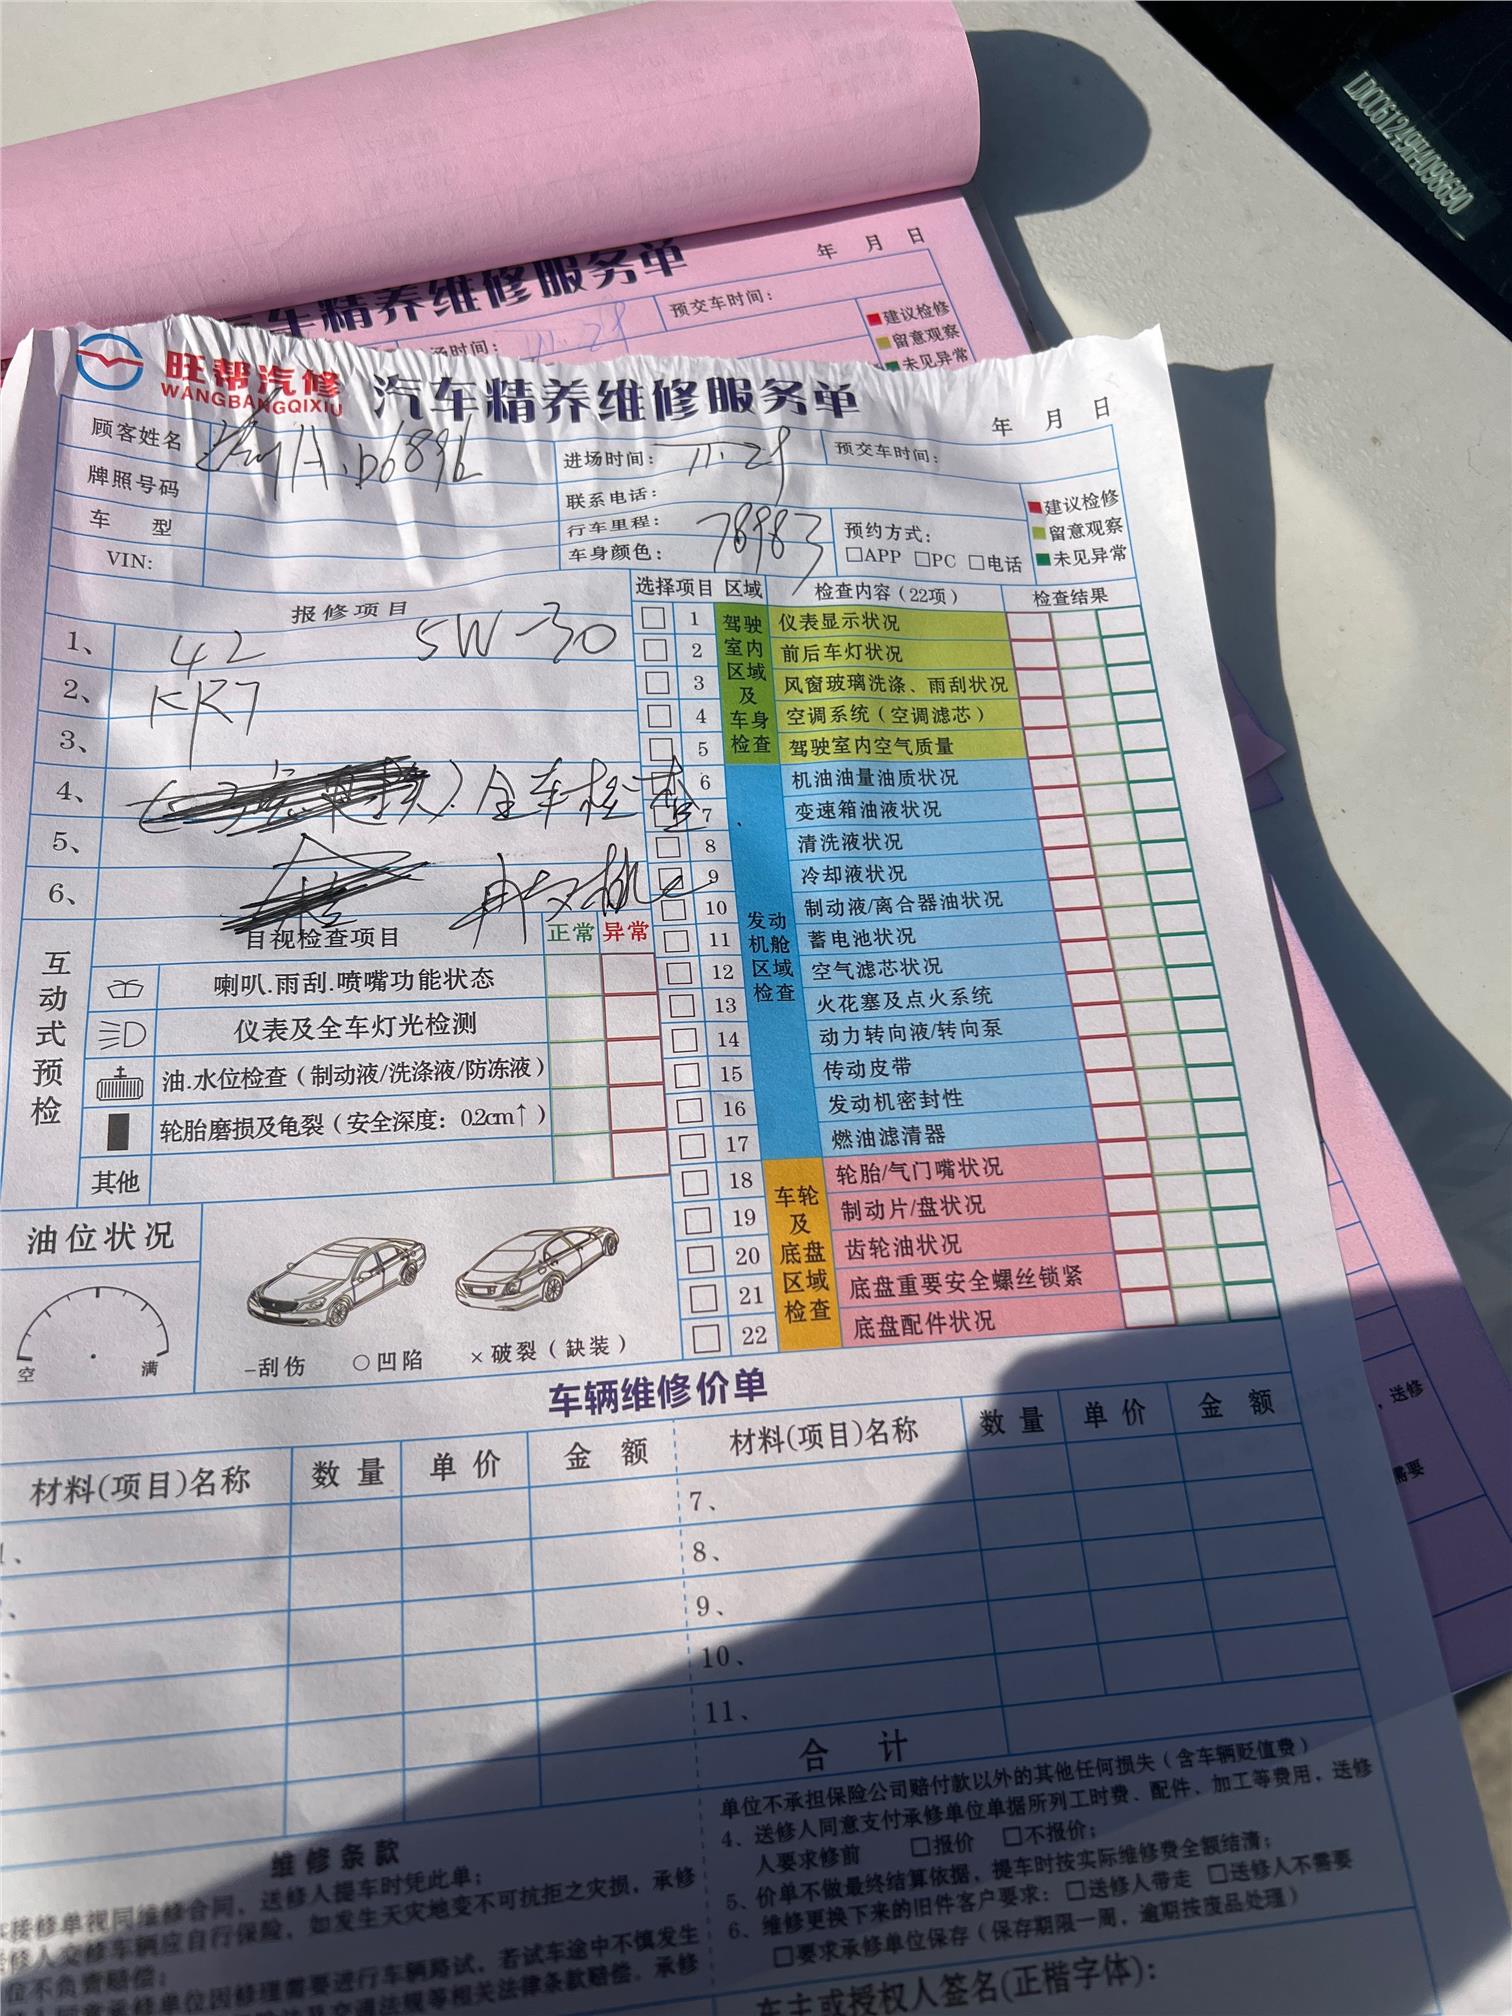 LDCC61249H098690
汽车精养维修服务单
年 月 日
场时间：
预交车时间：
建议检修
留意观察
未见异常
旺帮汽修
WANGBANGQIXIU
汽车精养维修服务单
年 月 日
顾客姓名
A·D6896
进场时间：
预交车时间：
牌照号码
联系电话：
车 型
行车里程：
78983
预约方式：
VIN:
车身颜色：
□APP □PC □电话
建议检修
留意观察
未见异常
报修项目
选择项目 区域 检查内容（22项） 检查结果
1、 4L 5W-30
2、 KR7
3、
4、 全车检查
5、
6、
驾驶室内区域及车身检查
1 仪表显示状况
2 前后车灯状况
3 风窗玻璃洗涤、雨刮状况
4 空调系统（空调滤芯）
5 驾驶室内空气质量
发动机舱区域检查
6 机油油量油质状况
7 变速箱油液状况
8 清洗液状况
9 冷却液状况
10 制动液/离合器油状况
11 蓄电池状况
12 空气滤芯状况
13 火花塞及点火系统
14 动力转向液/转向泵
15 传动皮带
16 发动机密封性
17 燃油滤清器
车轮及底盘区域检查
18 轮胎/气门嘴状况
19 制动片/盘状况
20 齿轮油状况
21 底盘重要安全螺丝锁紧
22 底盘配件状况
互动式预检
目视检查项目 正常 异常
喇叭.雨刮.喷嘴功能状态
仪表及全车灯光检测
油.水位检查（制动液/洗涤液/防冻液）
轮胎磨损及龟裂（安全深度：0.2cm↑）
其他
油位状况
空 满
-刮伤 ○凹陷 ×破裂（缺装）
车辆维修价单
材料(项目)名称 数量 单价 金额 材料(项目)名称 数量 单价 金额
7、
8、
9、
10、
11、
合 计
维修条款
接修单视同维修合同，送修人提车时凭此单；
修人交修车辆应自行保险，如发生天灾地变不可抗拒之灾损，承修
位不负责赔偿；
同意承修单位因修理需要进行车辆路试，若试车途中不慎发生
及交通法规等相关法律条款赔偿，承修
单位不承担保险公司赔付款以外的其他任何损失（含车辆贬值费）
4、送修人同意支付承修单位单据所列工时费、配件、加工等费用，送修
人要求修前 □报价 □不报价；
5、价单不做最终结算依据，提车时按实际维修费全额结清；
6、维修更换下来的旧件客户要求：□送修人带走 □送修人不需要
□要求承修单位保存（保存期限一周，逾期按废品处理）
车主或授权人签名(正楷字体)：
，送修
需要